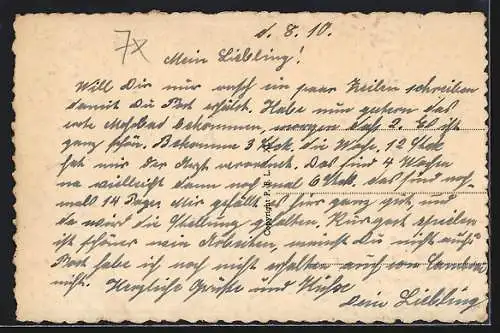 7x
d. 8. 10.
Mein Liebling!
Will Dir nur rasch ein paar Zeilen schreiben
damit Du Post erhälst. Habe nun gestern das
erste Moorbad bekommen, morgen das 2. Es ist
ganz schön. Bekomme 3 Stck. die Woche, 12 Stck
hat mir der Arzt verordnet. Das sind 4 Wochen
na vielleicht dann noch mal 6 Stck, das sind noch-
mals 14 Tage. Mir gefällt es hier ganz gut, und
da wird die Stellung gehalten. Kurgast spielen
ist schöner wie Arbeiten, meinst Du nicht auch?
Post habe ich noch nicht erhalten auch von
nicht. Herzliche Grüsse und Küsse
Dein Liebling
Copyright P. B. L.